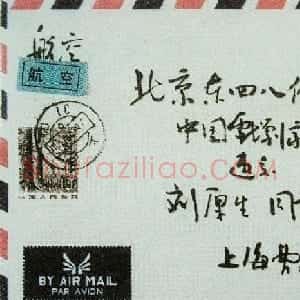 航空
航空
北京东四八
中国戏剧家
刘厚生 同
上海
shufaziliao.com
BY AIR MAIL
PAR AVION